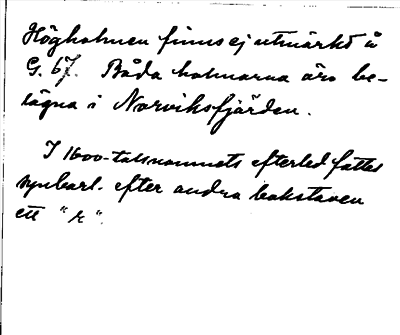 Högholmen finns ej utmärkt å
G. 67. Båda holmarna äro be-
lägna i Norviksfjärden.
I 1600-talsnamnets efterled fattas
synbarl. efter andra bokstaven
ett "r".